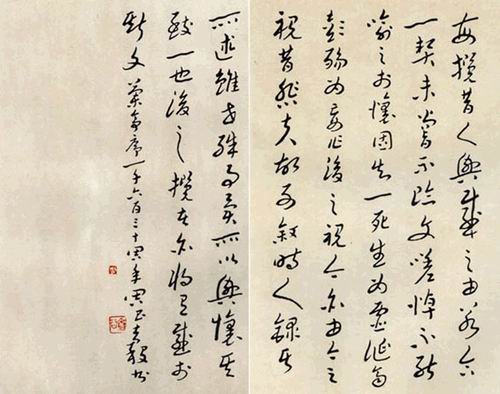 每攬昔人興感之由若合
一契未嘗不臨文嗟悼不能
喻之於懷固知一死生為虛誕齊
彭殤為妄作後之視今亦由今之
視昔悲夫故列敘時人錄其
所述雖世殊事異所以興懷其
致一也後之攬者亦將有感於
斯文 蘭亭序一千六百三十周年